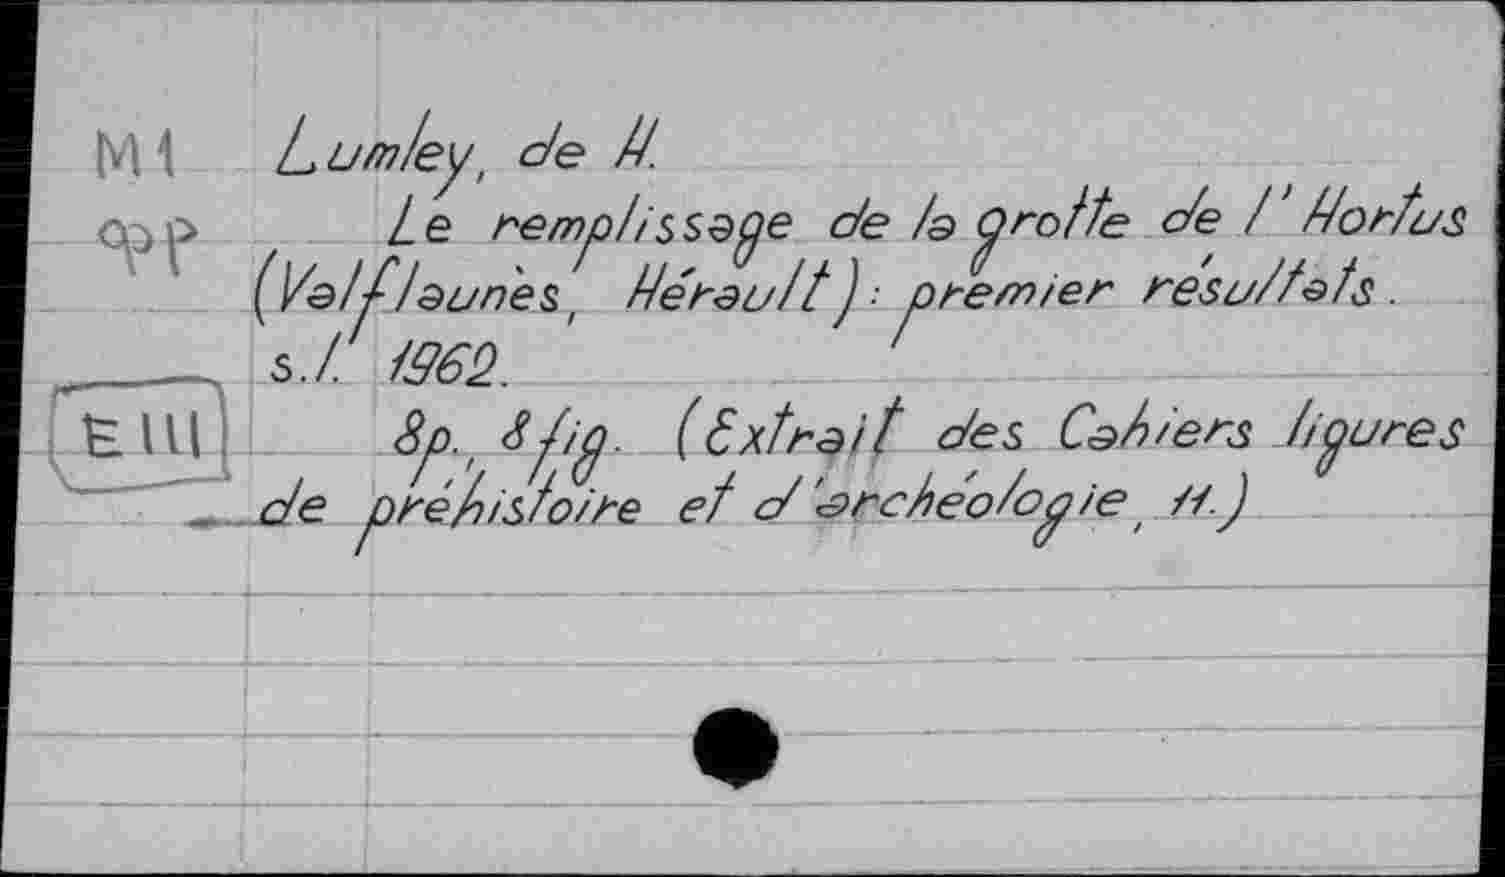 M1 Lumley, de H.
Le remplissage de la grotte de l'Hortus
(Valflaunès, Hérault): premier résultats.
s.l. 1962.
EIII 8p., 8 fig. (Extrait des Cahiers ligures
de préhistoire et d'archéologie, 11.)